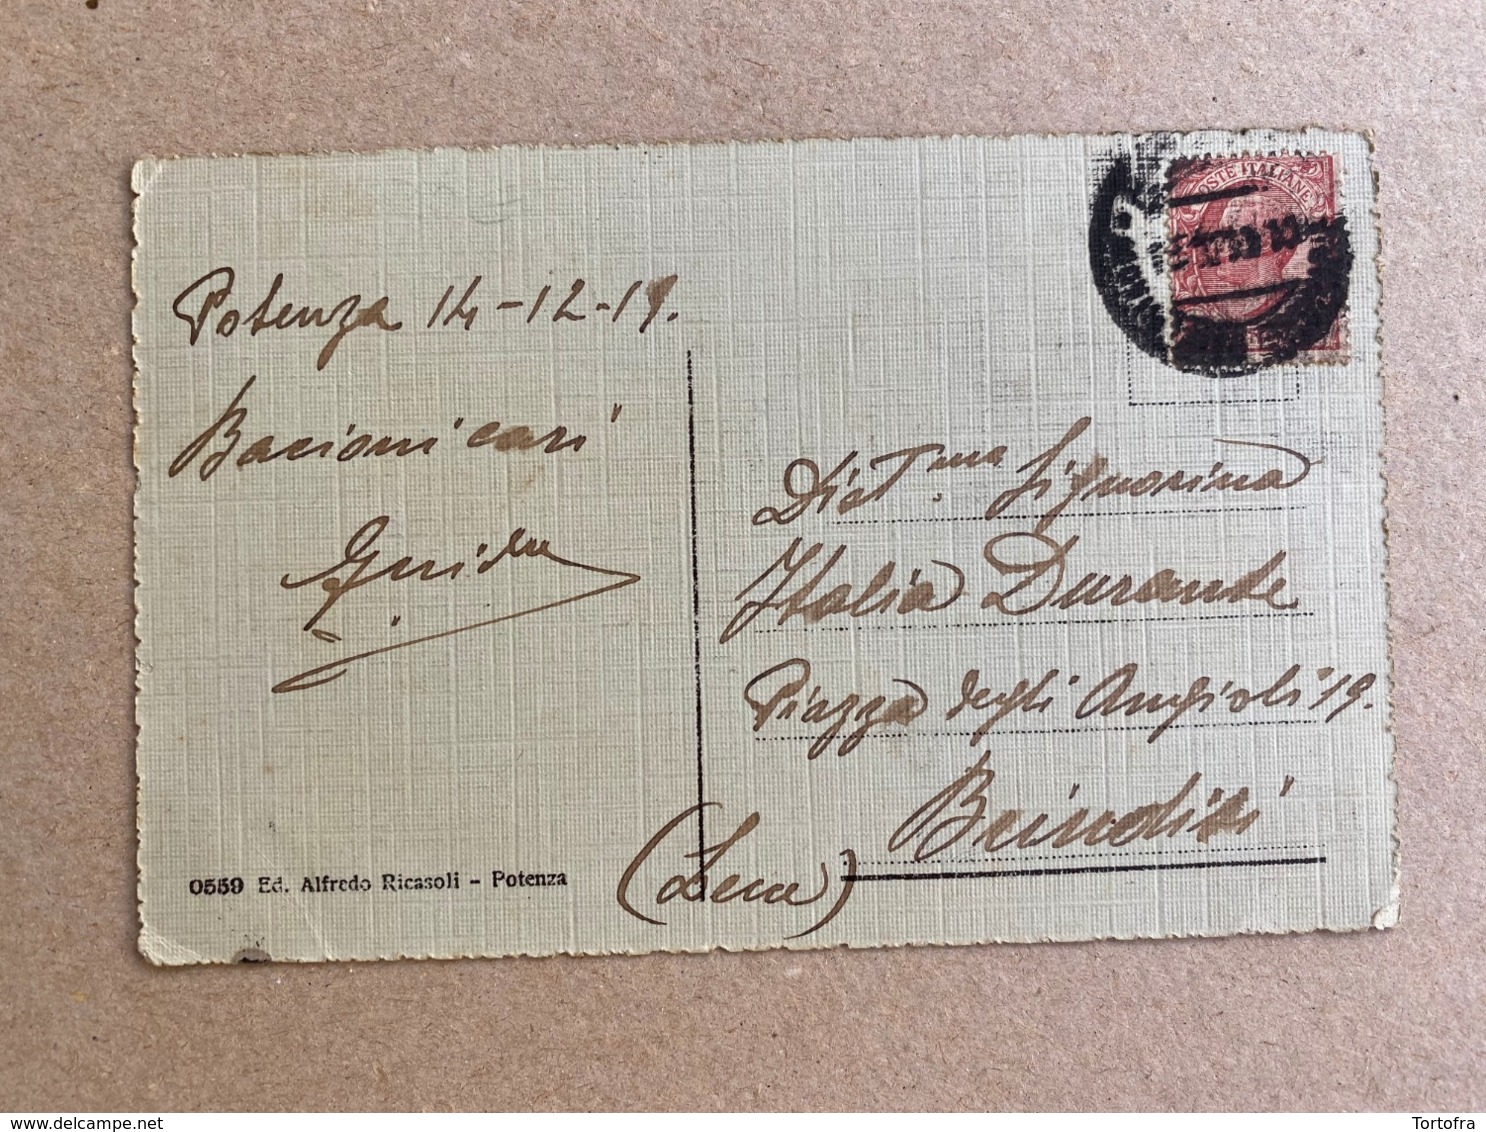 POSTE ITALIANE
Potenza 14-12-19.
Bacioni cari
Guido
Dist.ma Signorina
Italia Durante
Piazza degli Angioli 19.
Brindisi
(Lecce)
0559 Ed. Alfredo Ricasoli - Potenza
Tortofra